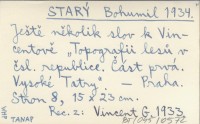 STARÝ Bohumil 1934.
Ještě několik slov k Vin-
centově „Topografii lesů v
čsl. republice. Část prvá.
Vysoké Tatry". — Praha.
Stron 8, 15 x 23 cm.
Rec. z: Vincent G. 1933
TANAP